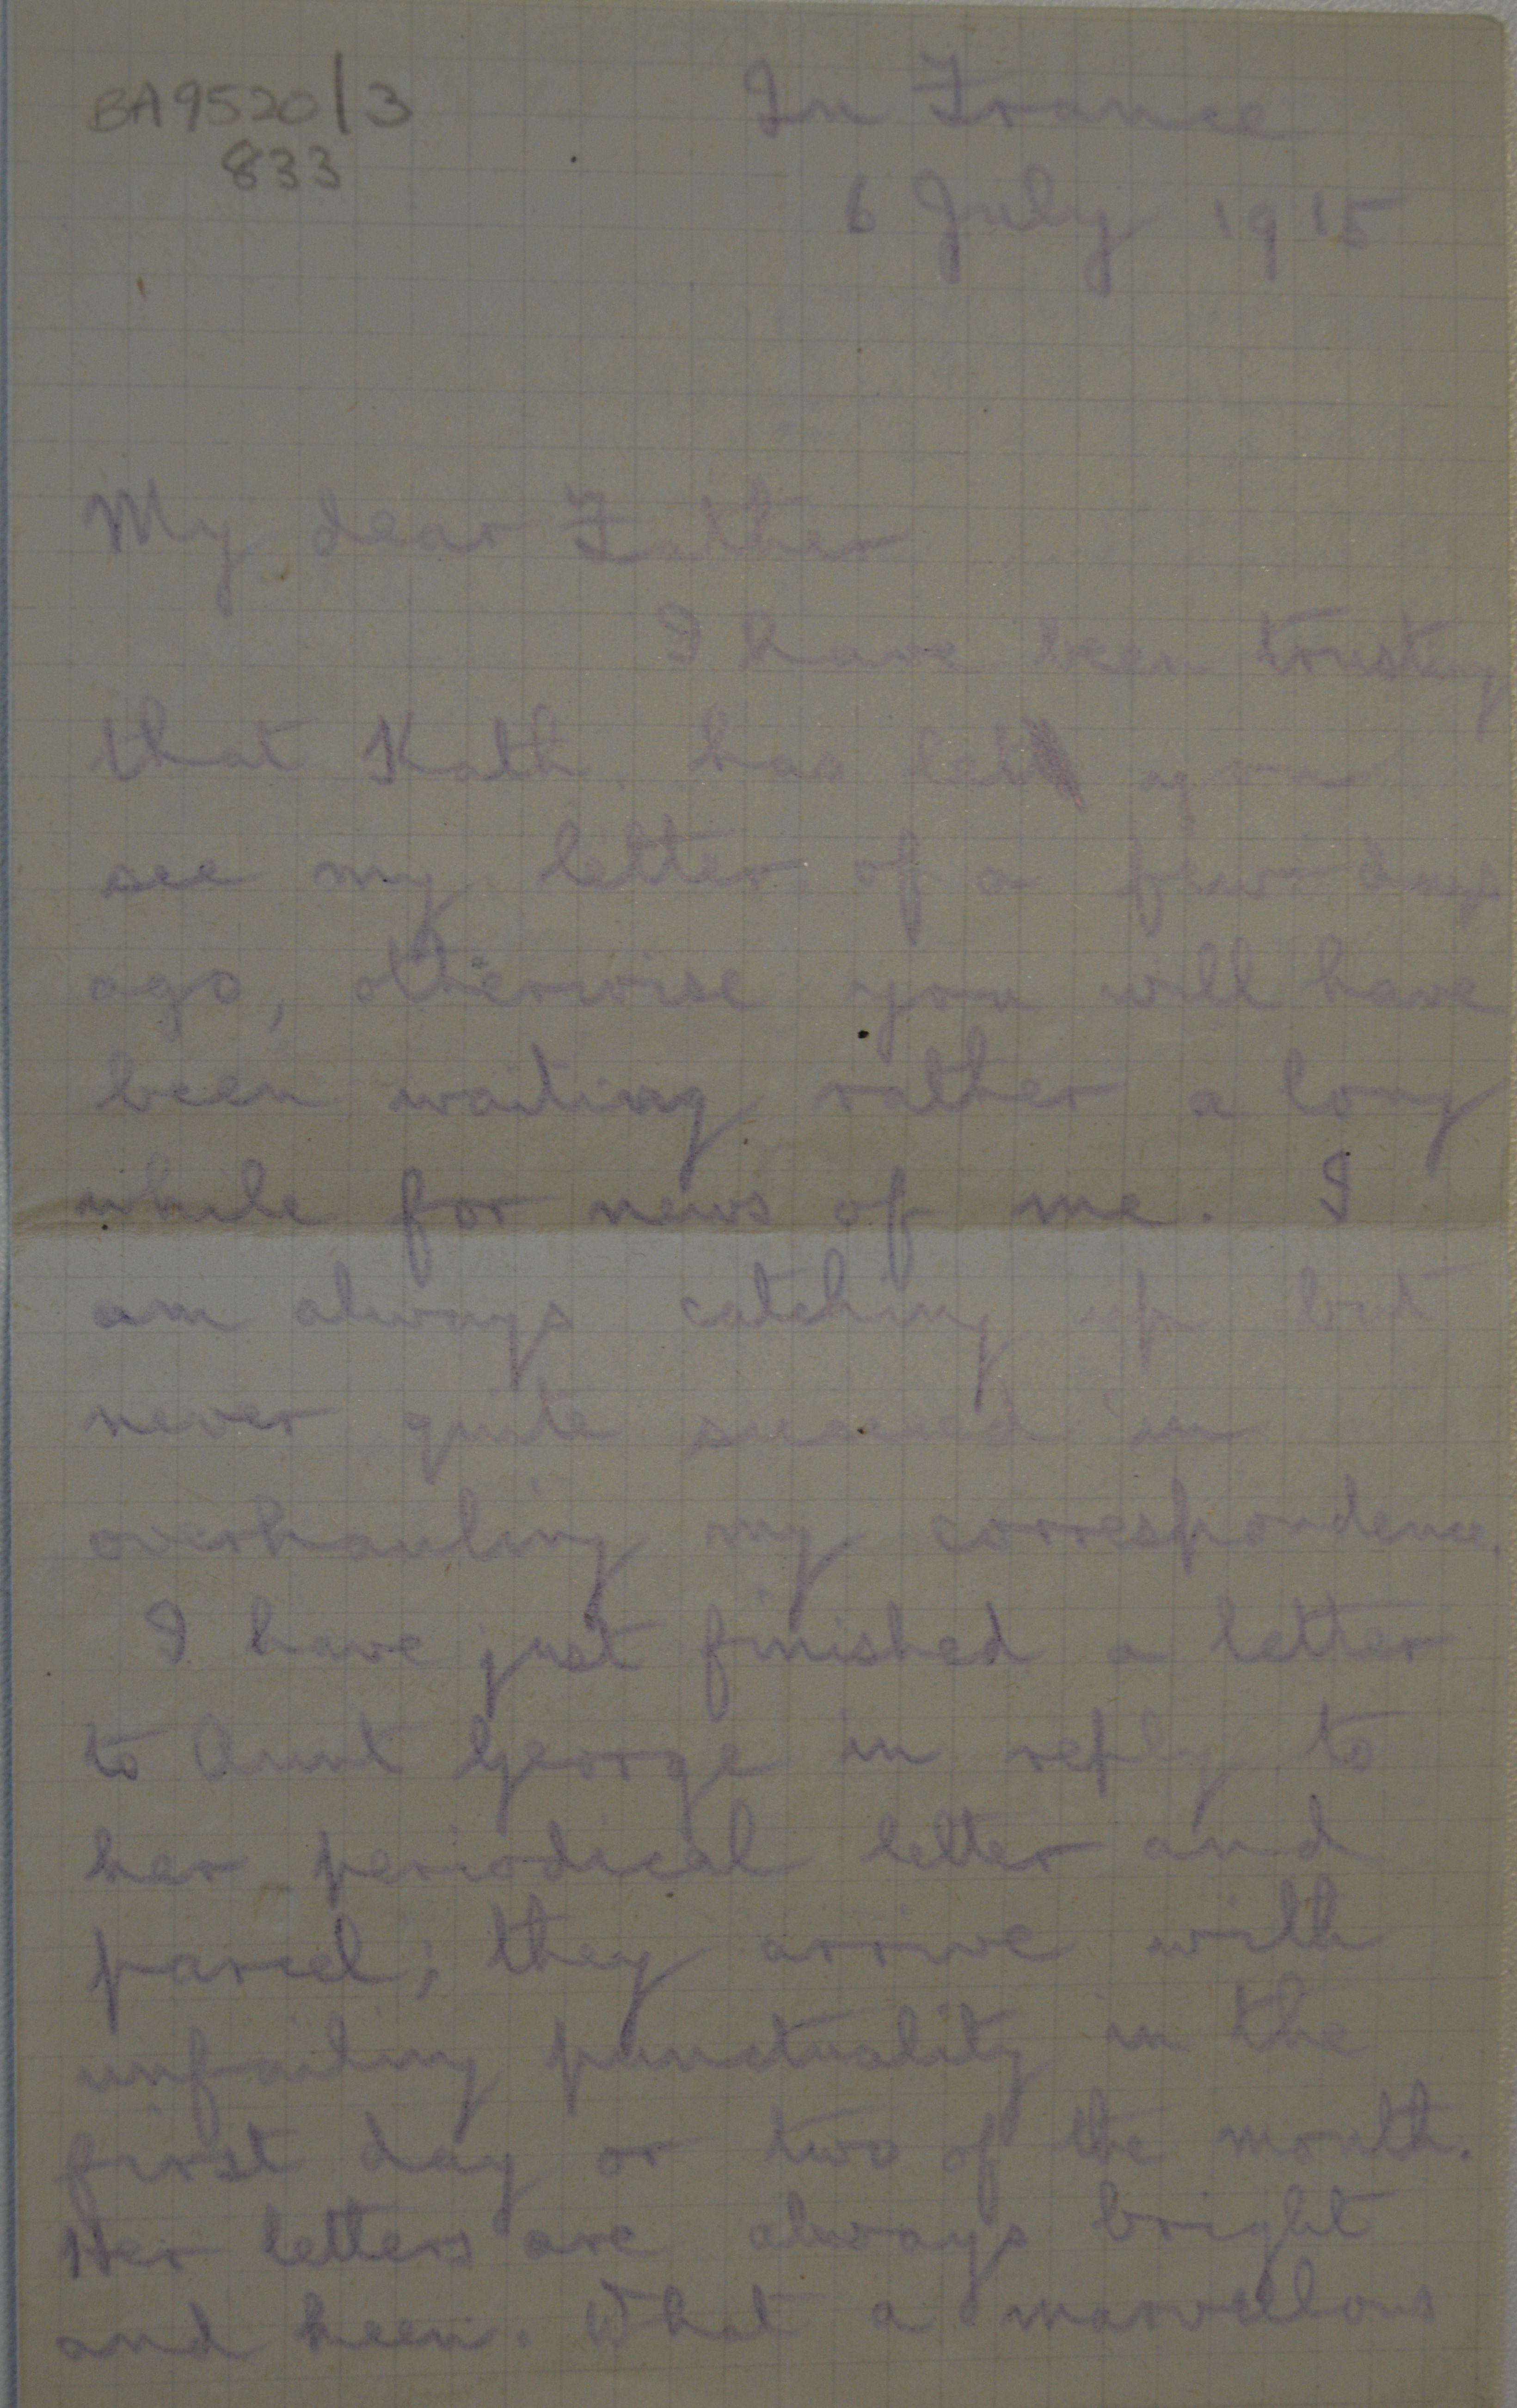 BA9520/3
833
In France
6 July 1915
My dear Father
I have been trusting
that Kath. has let you
see my letter of a few days
ago, otherwise you will have
been waiting rather a long
while for news of me. I
am always catching up but
never quite succeed in
overhauling my correspondence.
I have just finished a letter
to Aunt George in reply to
her periodical letter and
parcel; they arrive with
unfailing punctuality in the
first day or two of the month.
Her letters are always bright
and keen. What a marvellous